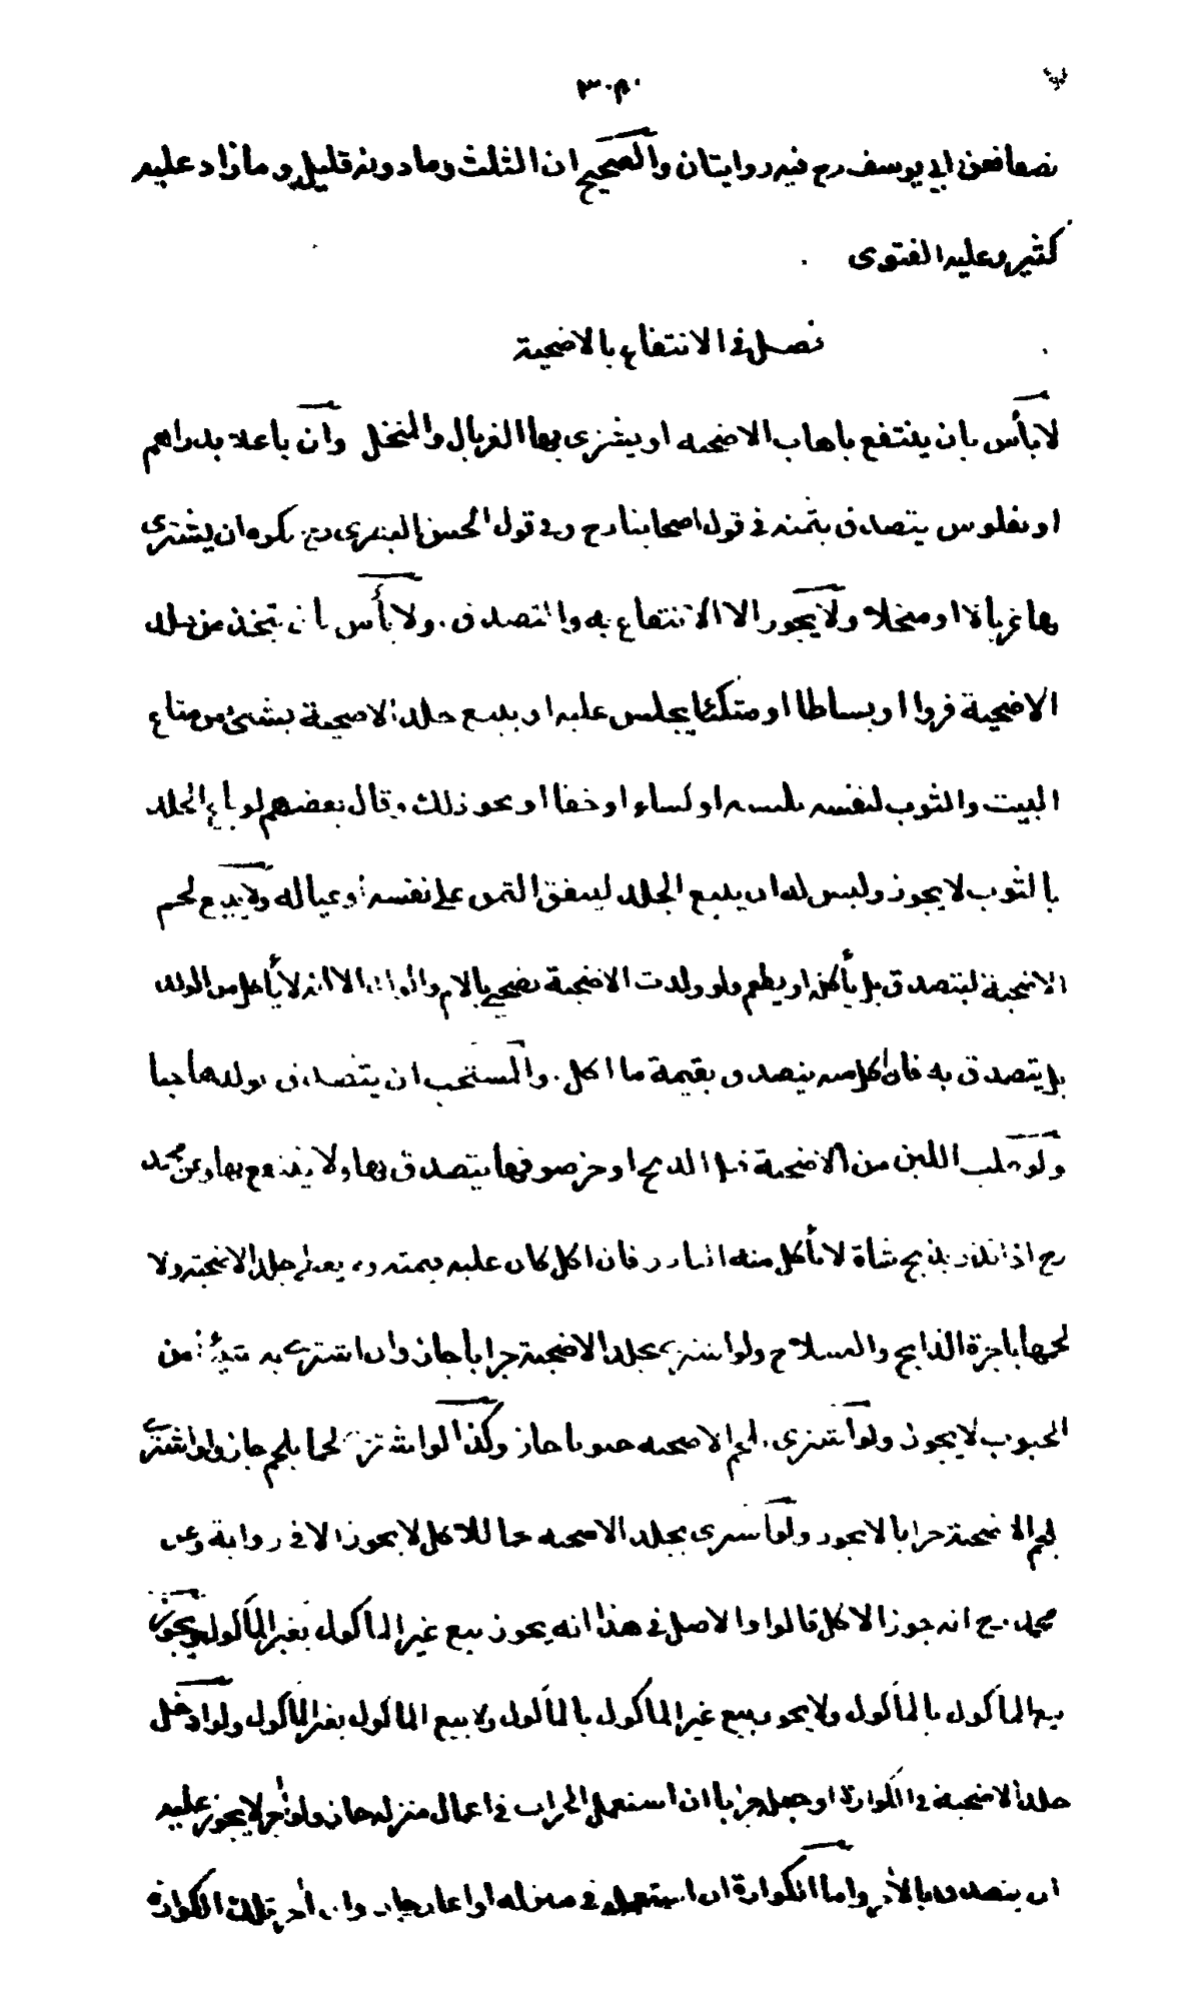 نصفا فعن ابي يوسف رح فيه روايتان والصحيح ان الثلث وما دونه قليل وما زاد عليه
كثير وعليه الفتوى
فصل في الانتفاع بالاضحية
لا بأس بان ينتفع باهاب الاضحيه او يشترى بها الغربال والمنخل وان باعه بدراهم
او بفلوس يتصدق بثمنه في قول اصحابنا رح وفي قول الحسن البصرى رح يكره ان يشترى
بها غربالا او منخلا ولا يجوز الا الانتفاع به والتصدق ولا بأس بان يتخذ من جلد
الاضحية فروا او بساطا او متكئا يجلس عليه او يبيع جلد الاضحية بشئ من متاع
البيت والثوب لنفسه يلبسه او كساء او خفا او نحو ذلك وقال بعضهم لو باع الجلد
بالثوب لا يجوز وليس له ان يبيع الجلد لينفق الثمن على نفسه او عياله ولا يبيع لحم
الاضحية ليتصدق بل يأكل او يطعم ولو ولدت الاضحية يضحي بالام والولد الا انه لا يأكل من الولد
بل يتصدق به فان اكل منه يتصدق بقيمة ما اكل والمستحب ان يتصدق بولدها حيا
ولو حلب اللبن من الاضحية قبل الذبح او جز صوفها يتصدق بها ولا ينتفع بها وعن محمد
رح اذا نذر بذبح شاة لا يأكل منه الناذر فان اكل كان عليه قيمته ولا يعطي جلد الاضحية ولا
لحمها باجرة الذابح والسلاخ ولو اشترى بجلد الاضحية جرابا جاز وان اشترى به شيئا من
الحبوب لا يجوز ولو اشترى بلحم الاضحيه حبوبا جاز وكذا لو اشترى لحما بلحم جاز ولو اشترى
بلحم الاضحية جرابا لا يجوز ولو اشترى بجلد الاضحيه لحما للاكل لا يجوز الا في رواية وعن
محمد رح انه جوز الاكل قالوا والاصل في هذا انه يجوز بيع غير المأكول بغير المأكول ويجوز
بيع المأكول بالمأكول ولا يجوز بيع غير المأكول بالمأكول ولا بيع المأكول بغير المأكول ولو ادخل
جلد الاضحية في الكوارة او جعل جرابا ان استعمل الجراب في اعمال منزله جاز ولو آجر لا يجوز عليه
ان يتصدق بالأجر واما الكوارة ان استعمله في منزله او اعار جاز وان آجر تلك الكوارة